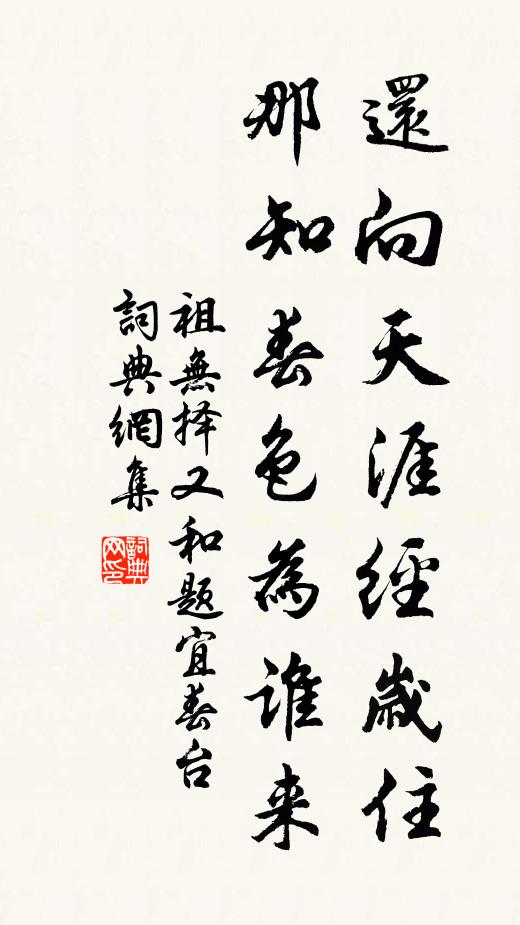 還向天涯經歲住
那知春色為誰来
祖無择又和題宜春台
詞典網集
詞典
网印